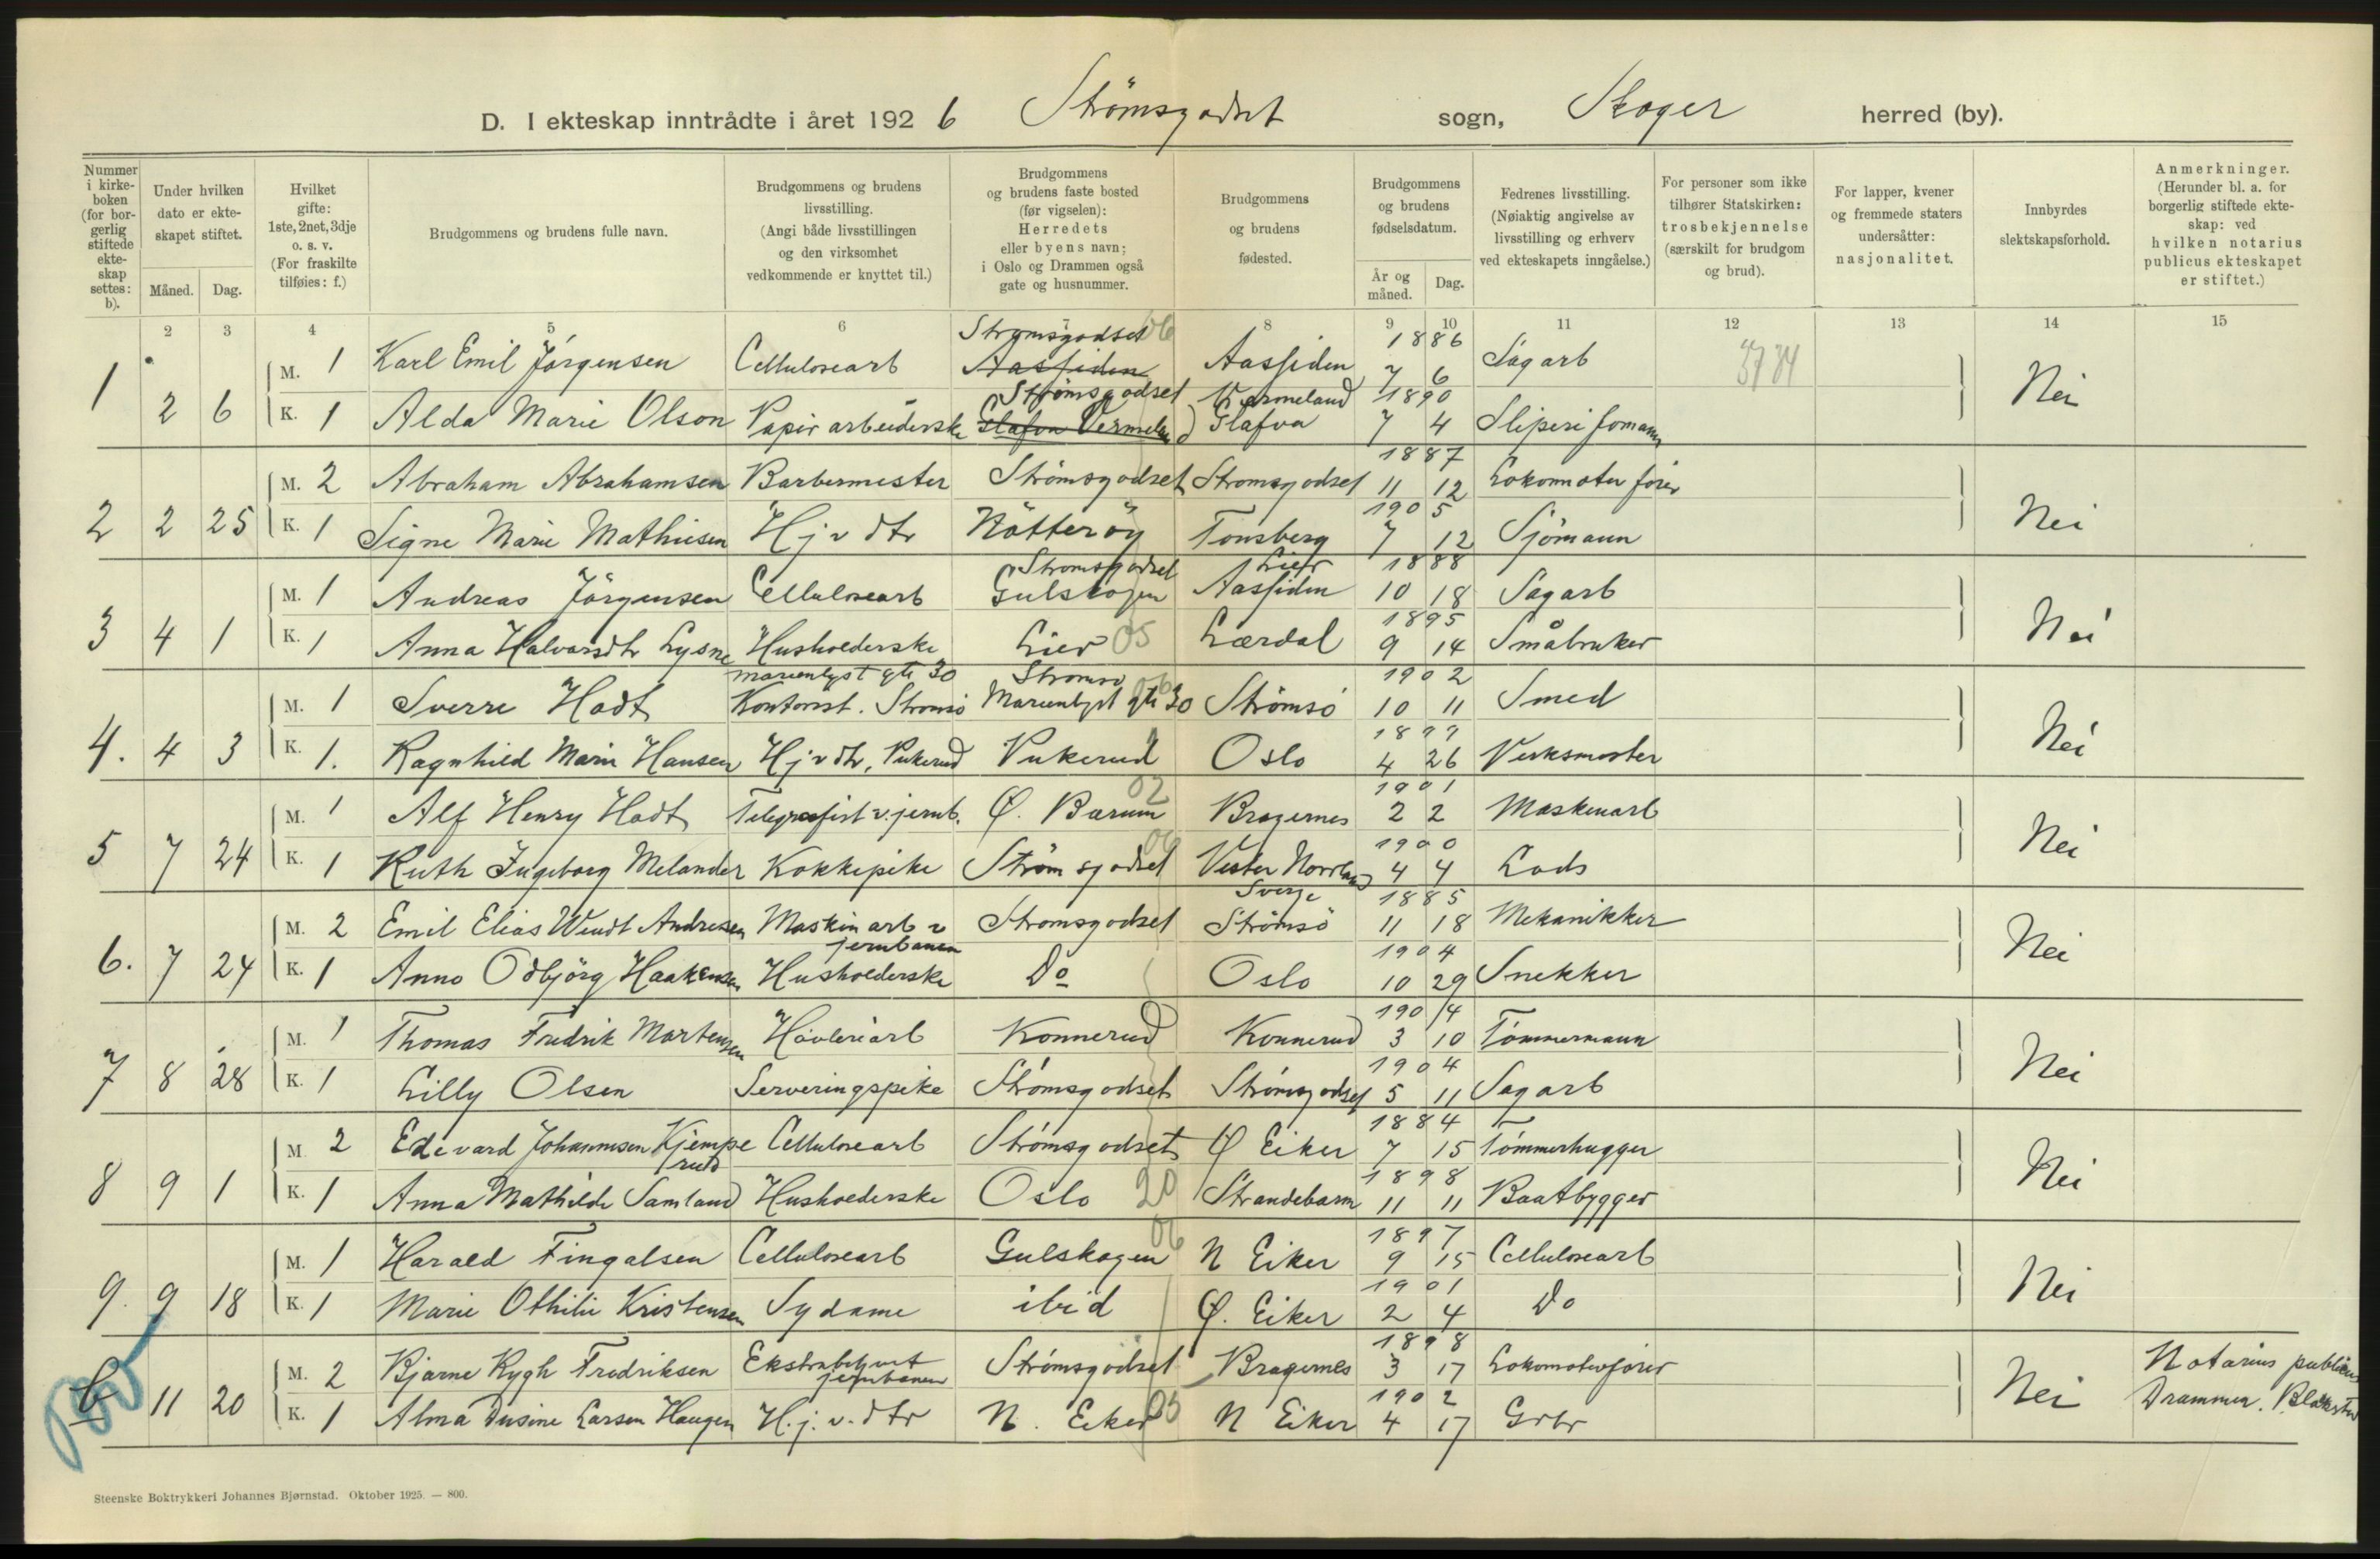 D. I ekteskap inntrådte i året 1926 Strömsgodset sogn, Skoger herred (by).
Nummer i kirkeboken (for borgerlig stiftede ekteskap settes: b).
Under hvilken dato er ekteskapet stiftet.
Måned. Dag.
Hvilket gifte: 1ste, 2net, 3dje o. s. v. (For fraskilte tilføies: f.)
Brudgommens og brudens fulle navn.
Brudgommens og brudens livsstilling. (Angi både livsstillingen og den virksomhet vedkommende er knyttet til.)
Brudgommens og brudens faste bosted (før vigselen): Herredets eller byens navn; i Oslo og Drammen også gate og husnummer.
Brudgommens og brudens fødested.
Brudgommens og brudens fødselsdatum.
År og måned. Dag.
Fedrenes livsstilling. (Nøiaktig angivelse av livsstilling og erhverv ved ekteskapets inngåelse.)
For personer som ikke tilhører Statskirken: trosbekjennelse (særskilt for brudgom og brud).
For lapper, kvener og fremmede staters undersåtter: nasjonalitet.
Innbyrdes slektskapsforhold.
Anmerkninger. (Herunder bl. a. for borgerlig stiftede ekteskap: ved hvilken notarius publicus ekteskapet er stiftet.)
2 3 4 5 6 7 8 9 10 11 12 13 14 15
1 2 6 M. 1 Karl Emil Jörgensen Cellulosearb Strömsgodset Aassiden 06 Aassiden 1886 7 6 Sagarb Nei
K. 1 Alda Marie Olson Papirarbeiderske Strömsgodset Glafva Vermeland Vermeland Glafva 1890 7 4 Sliperiformann
2 2 25 M. 2 Abraham Abrahamsen Barbermester Strömsgodset Strömsgodset 1887 11 12 Lokomotivförer Nei
K. 1 Signe Marie Mathiesen Hj v dtr Nötteröy Tönsberg 1905 7 12 Sjömann
3 4 1 M. 1 Andreas Jörgensen Cellulosearb Strömsgodset Gulskogen Lier Aassiden 1888 10 18 Sagarb Nei
K. 1 Anna Halvorsdtr Lysne Husholderske Lier 05 Lærdal 1895 9 14 Småbruker
4. 4 3 M. 1 Sverre Hodt Marienlyst gt 30 Kontorist. Strömsö Strömsö Marienlyst gt 30 06 Strömsö 1902 10 11 Smed Nei
K. 1. Ragnhild Marie Hansen Hj v dtr, Pukerud Pukerud Oslo 1899 4 26 Verksmester
5 7 24 M. 1 Alf Henry Hodt Telegrafist v. jernb. Ø. Bærum 02 Bragernes 1901 2 2 Maskinarb Nei
K. 1 Ruth Ingeborg Melander Kokkepike Strömsgodset 06 Vester Norrland Sverge 1900 4 4 Lods
6. 7 24 M. 2 Emil Elias Wendt Andresen Maskinarb v jernbanen Strömsgodset Strömsö 1885 11 18 Mekanikker Nei
K. 1 Anna Odbjörg Haakensen Husholderske Do Oslo 1904 10 29 Snekker
7 8 28 M. 1 Thomas Fredrik Martensen Hövleriarb Konnerud Konnerud 1904 3 10 Tömmermann Nei
K. 1 Lilly Olsen Serveringspike Strömsgodset Strömsgodset 1904 5 11 Sagarb
8 9 1 M. 2 Edevard Johannesen Kjemperud Cellulosearb Strömsgodset Ø Eiker 1884 7 15 Tömmerhugger Nei
K. 1 Anna Mathilde Samland Husholderske Oslo 20 Strandebarm 1898 11 11 Baatbygger
9. 9 18 M. 1 Harald Fingalsen Cellulosearb Gulskogen 06 N Eiker 1897 9 15 Cellulosearb Nei
K. 1 Marie Othilie Kristensen Sydame ibid Ø. Eiker 1901 2 4 Do
b 11 20 M. 2 Bjarne Rygh Fredriksen Ekstrabetjent jernbanen Strömsgodset Bragernes 1898 3 17 Lokomotivförer Nei Notarius publicus
K. 1 Alma Dusine Larsen Haugen H. j. v. dtr N. Eiker 05 N Eiker 1902 4 17 Grbr Drammen.
Steenske Boktrykkeri Johannes Bjørnstad. Oktober 1925. — 800.